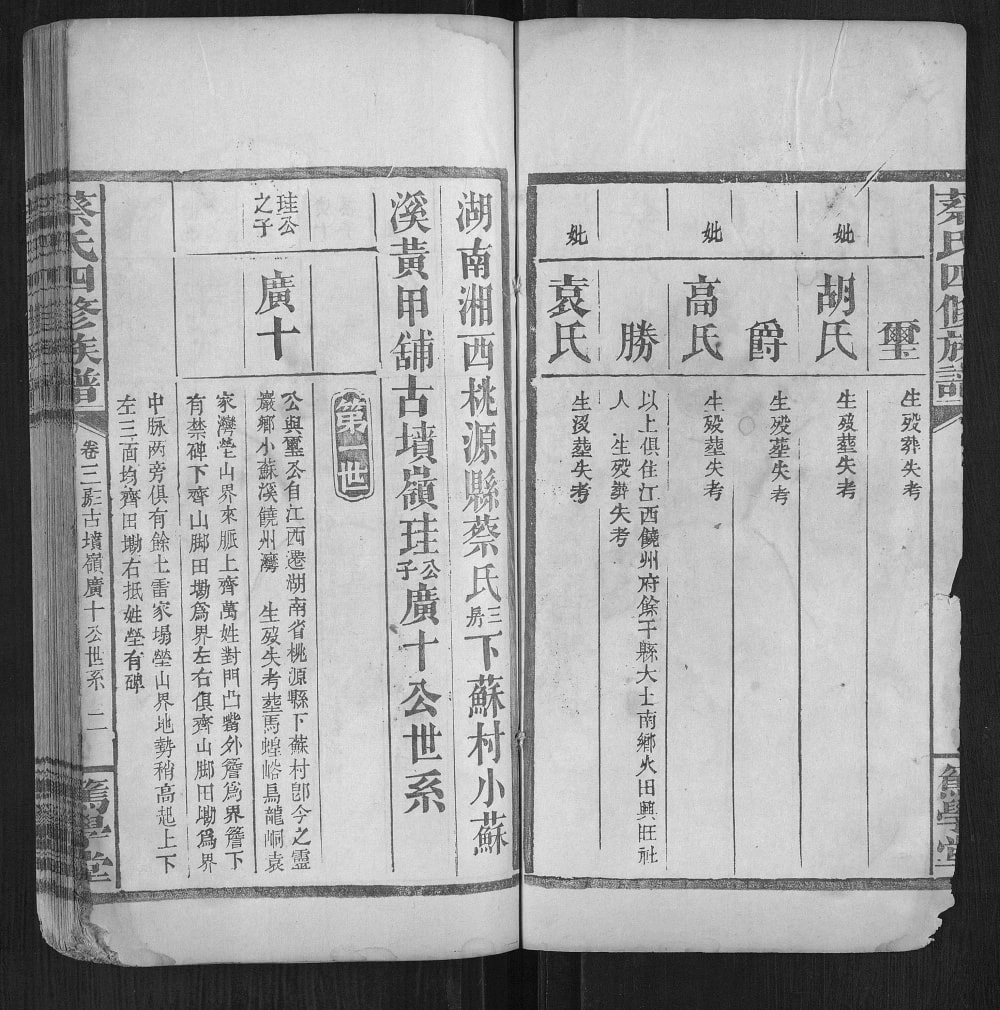 蔡氏四修族譜
篤學堂
璽
生殁葬失考
妣
胡氏
生殁葬失考
爵
生殁葬失考
妣
高氏
生殁葬失考
勝
以上俱住江西饒州府餘干縣大士南鄉火田興旺社
人　生殁葬失考
妣
袁氏
生殁葬失考
湖南湘西桃源縣蔡氏三房下蘇村小蘇
溪黃甲舖古墳嶺珪公子廣十公世系
第一世
珪公
之子
廣十
公與璽公自江西遷湖南省桃源縣下蘇村卽今之靈
巖鄉小蘇溪饒州灣　生殁失考葬馬蝗峪烏龍峒袁
家灣塋山界來脈上齊萬姓對門凸嘴外簷爲界簷下
有禁碑下齊山脚田墈爲界左右俱齊山脚田墈爲界
中脉兩旁俱有餘土雷家塌塋山界地勢稍高起上下
左三面均齊田墈右抵姓塋有碑
蔡氏四修族譜
卷三 古墳嶺廣十公世系
二
篤學堂